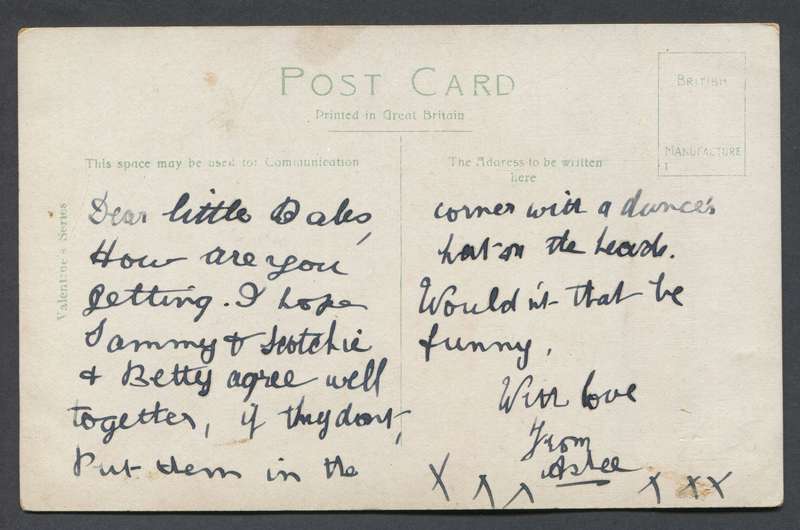 POST CARD
Printed in Great Britain
BRITISH
MANUFACTURE
This space may be used for Communication
The Address to be written
here
Valentine's Series
Dear little Babs,
How are you
getting. I hope
Sammy & Scotchie
& Betty agree well
together, if they dont,
Put them in the
corner with a dunce's
hat on the heads.
Would n't that be
funny.
With love
From
X X X X X X